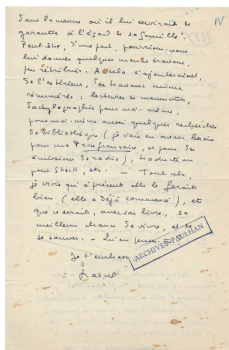 dans la mesure où il lui servirait de
garantie à l'égard de sa famille.
Peut-être, d'une part, pourrions-nous
lui donner quelques menus travaux,
peu rétribués. À cela s'ajouteraient,
de l'extérieur, des travaux mieux
rémunérés : lectures de manuscrits,
dactylographie pour moi-même,
pour moi-même aussi quelques recherches
de bibliothèque (je vais en avoir besoin
pour une Prose française, et pour des
émissions de radio), traductions
pour Stock, etc. — Tout cela,
je crois qu'à présent elle le ferait
bien (elle a déjà commencé), et
que ce serait, avec son livre, sa
meilleure chance de vivre, et de
se sauver.
Je t'embrasse
ARCHIVES PAULHAN